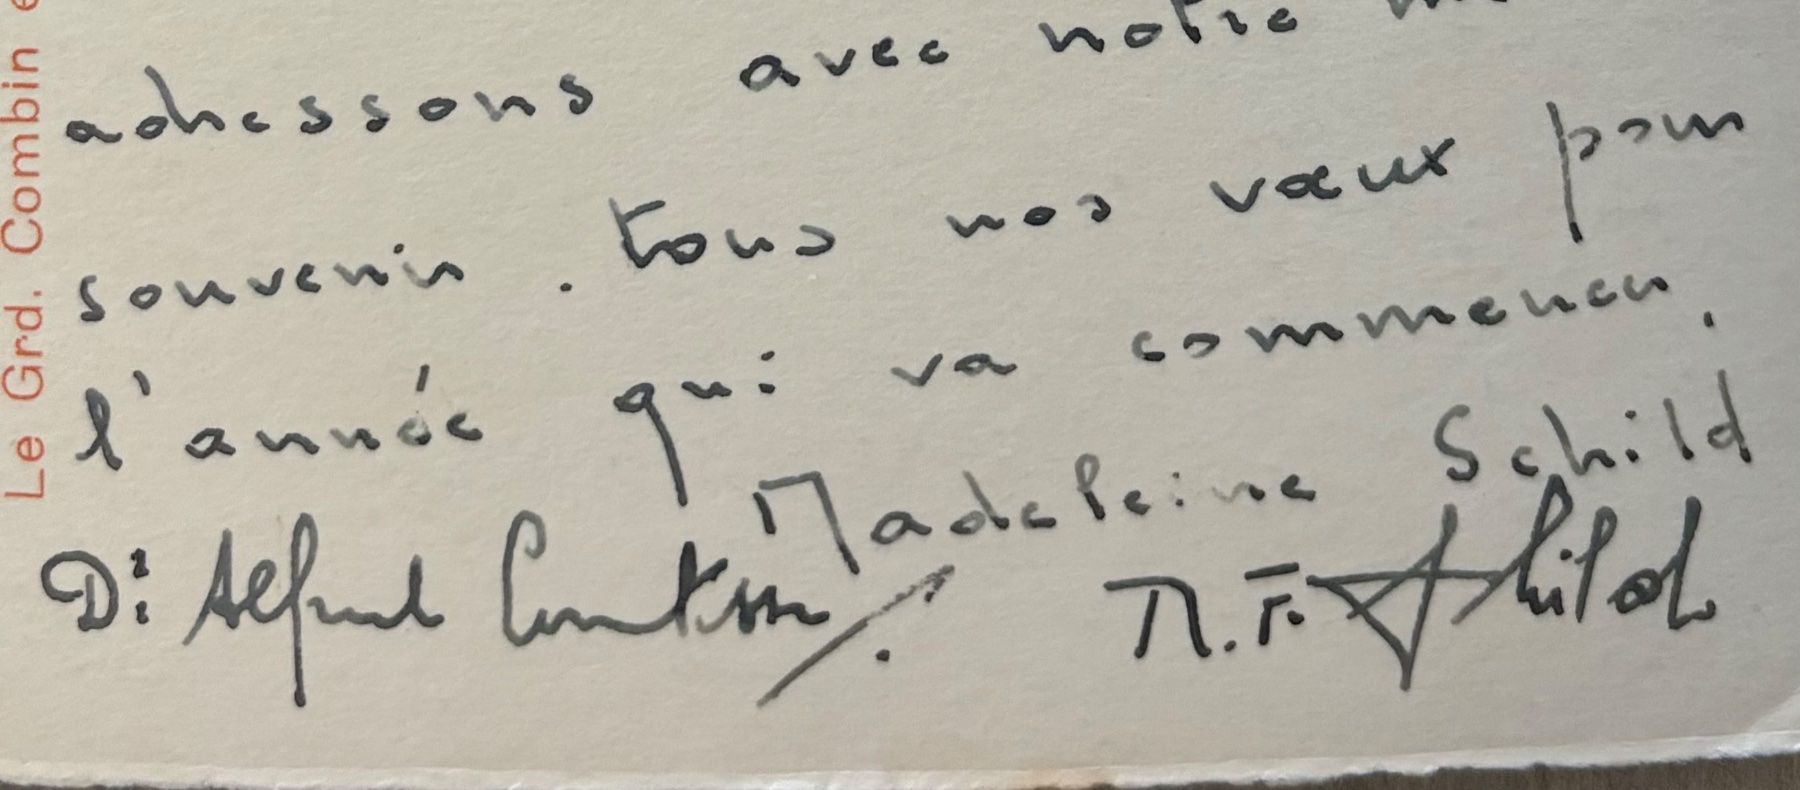 Le Grd. Combin e
adressons avec notre
souvenir. tous nos vœux pour
l'année qui va commencer.
Madeleine Schild
Dr Alfred Comtesse. M.F. Schild